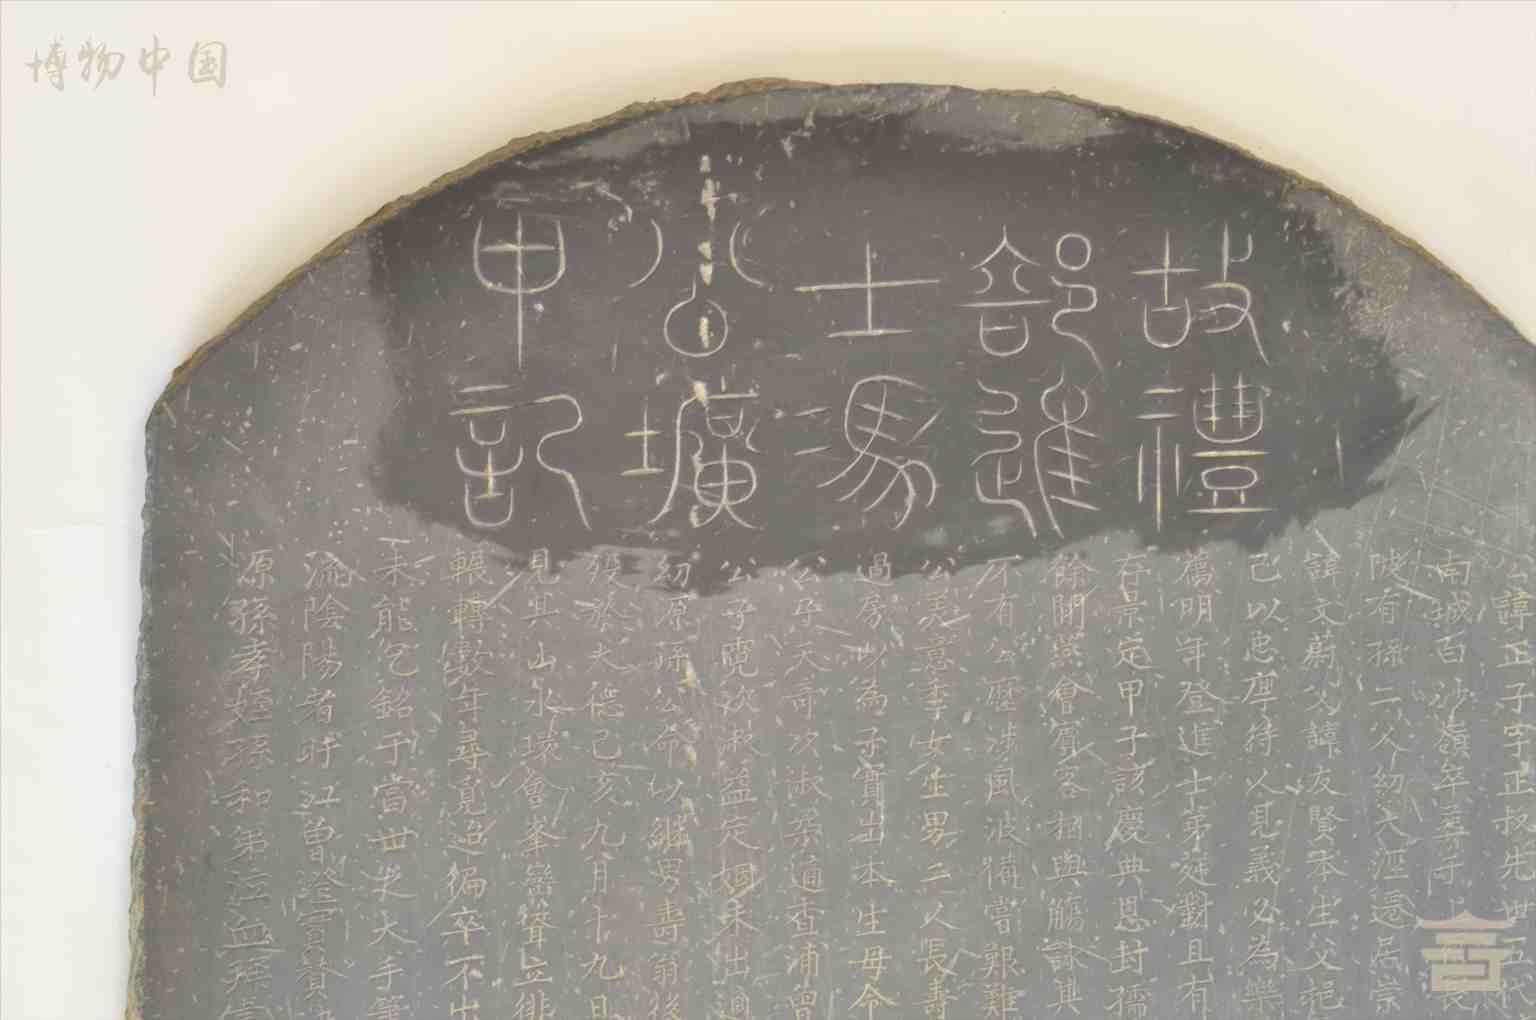 博物中国
故禮
部進
士馮
公壙
甲記
公諱正子字正叔先世五代
南城百沙嶺年壽
陵有孫二父幼文遷居崇
諱文蔚父諱友賢本生父
己以忠人見義必為樂
薦明年登進士第廷對且有
存景定甲子該慶典恩封孺
餘閒燕會賓客相與觴詠其
不有公歷涉風波備嘗艱難
公美意李女生男三人長壽
過房以為子實出本生母命
公子天奇次淑榮適查浦曾
公子寬次淑益笄姻未出適
幼原孫公命以繼男壽翁後
歿於大德己亥九月十九日
見其山水環會峯巒聳立徘
輾轉數年尋覓迨徧卒不出
未能乞銘于當世大手筆
流陰陽者盱江曾
原孫孝姪孫和弟泣血拜